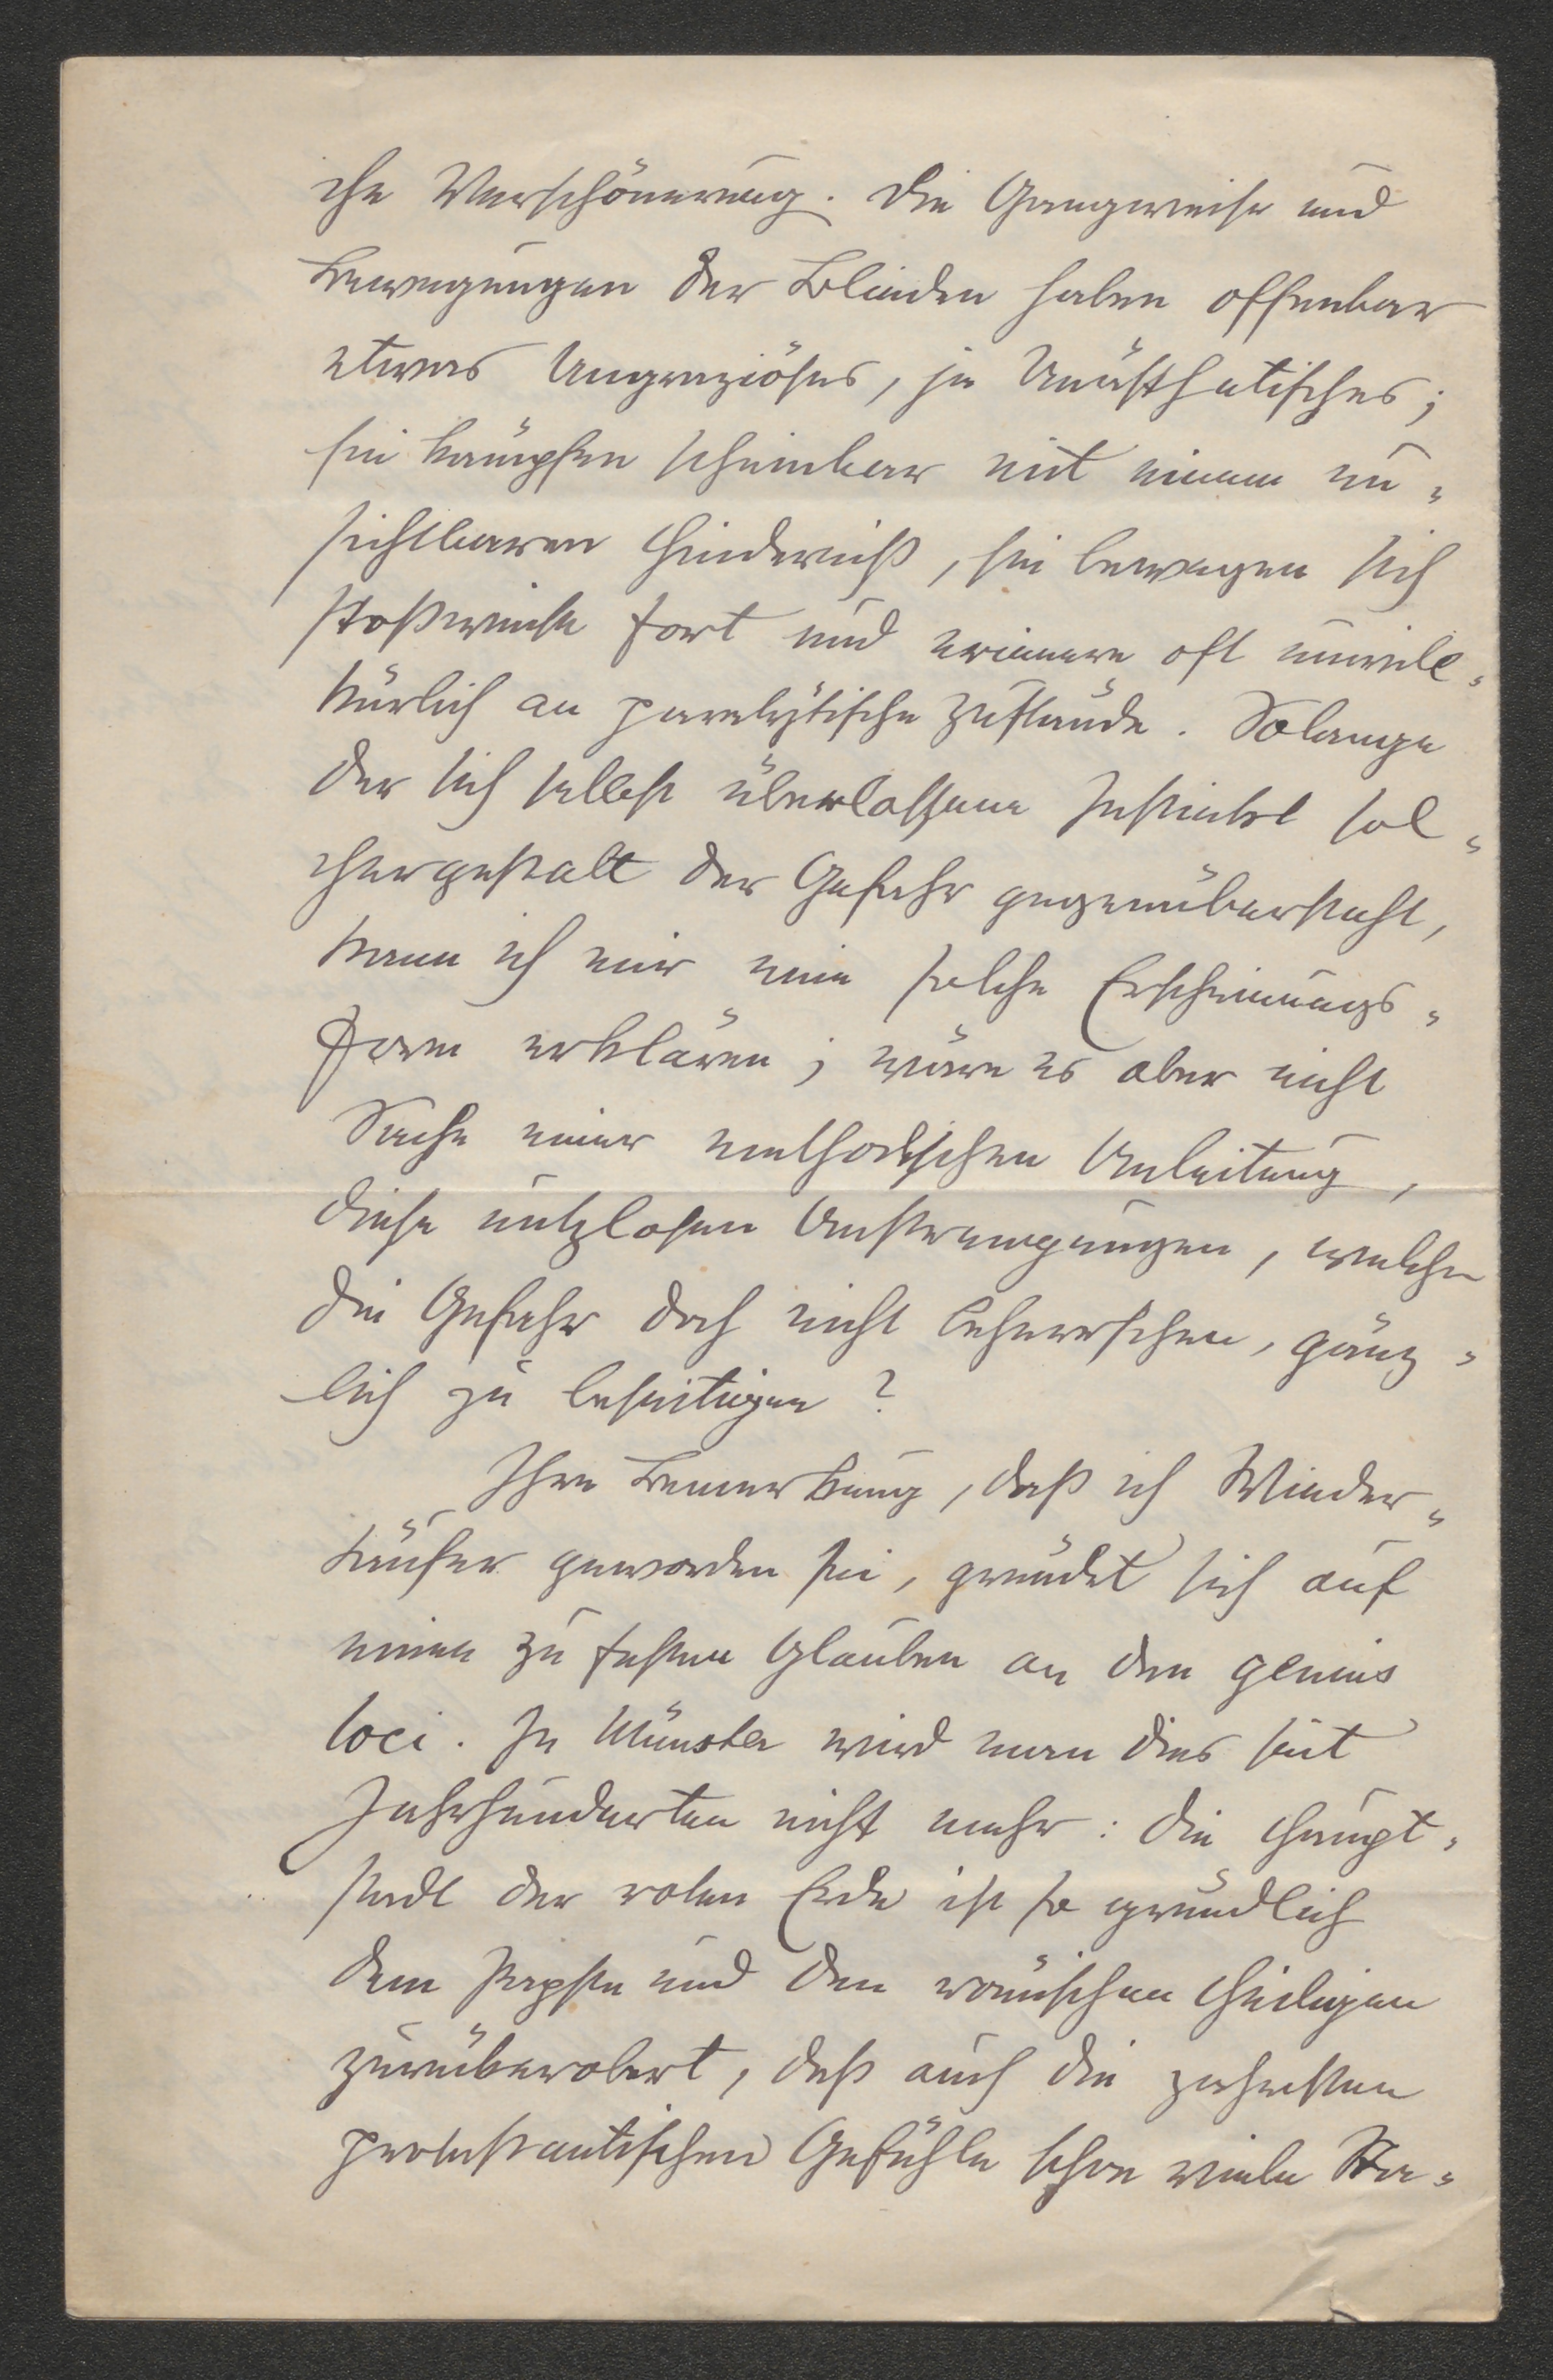 che Verschönerung. Die Gangweise und
Bewegungen der Blinden haben offenbar
etwas Ungraziöses, ja Unästhetisches;
sie kämpfen scheinbar mit einem un„
sichtbaren Hinderniß, sie bewegen sich
stoßweise fort und erinnern oft unwill„
kürlich an paralytische Zustände. Solange
der sich selbst überlassene Instinkt sol„
chergestalt der Gefahr gegenübersteht,
kann ich mir eine solche Erscheinungs„
form erklären; wäre es aber nicht
Sache einer methodischen Anleitung,
diese nutzlosen Anstrengungen, welche
die Gefahr doch nicht beherrschen, gänz„
lich zu beseitigen?
Ihre Bemerkung, daß ich Wieder„
täufer geworden sei, gründet sich auf
einen zu festen Glauben an den genius
loci. In Münster wird man dies seit
Jahrhunderten nicht mehr: die Haupt„
stadt der roten Erde ist so gründlich
dem Papste und den römischen Heiligen
zurückerobert, daß auch die zahmsten
protestantischen Gefühle schon viele Sta„